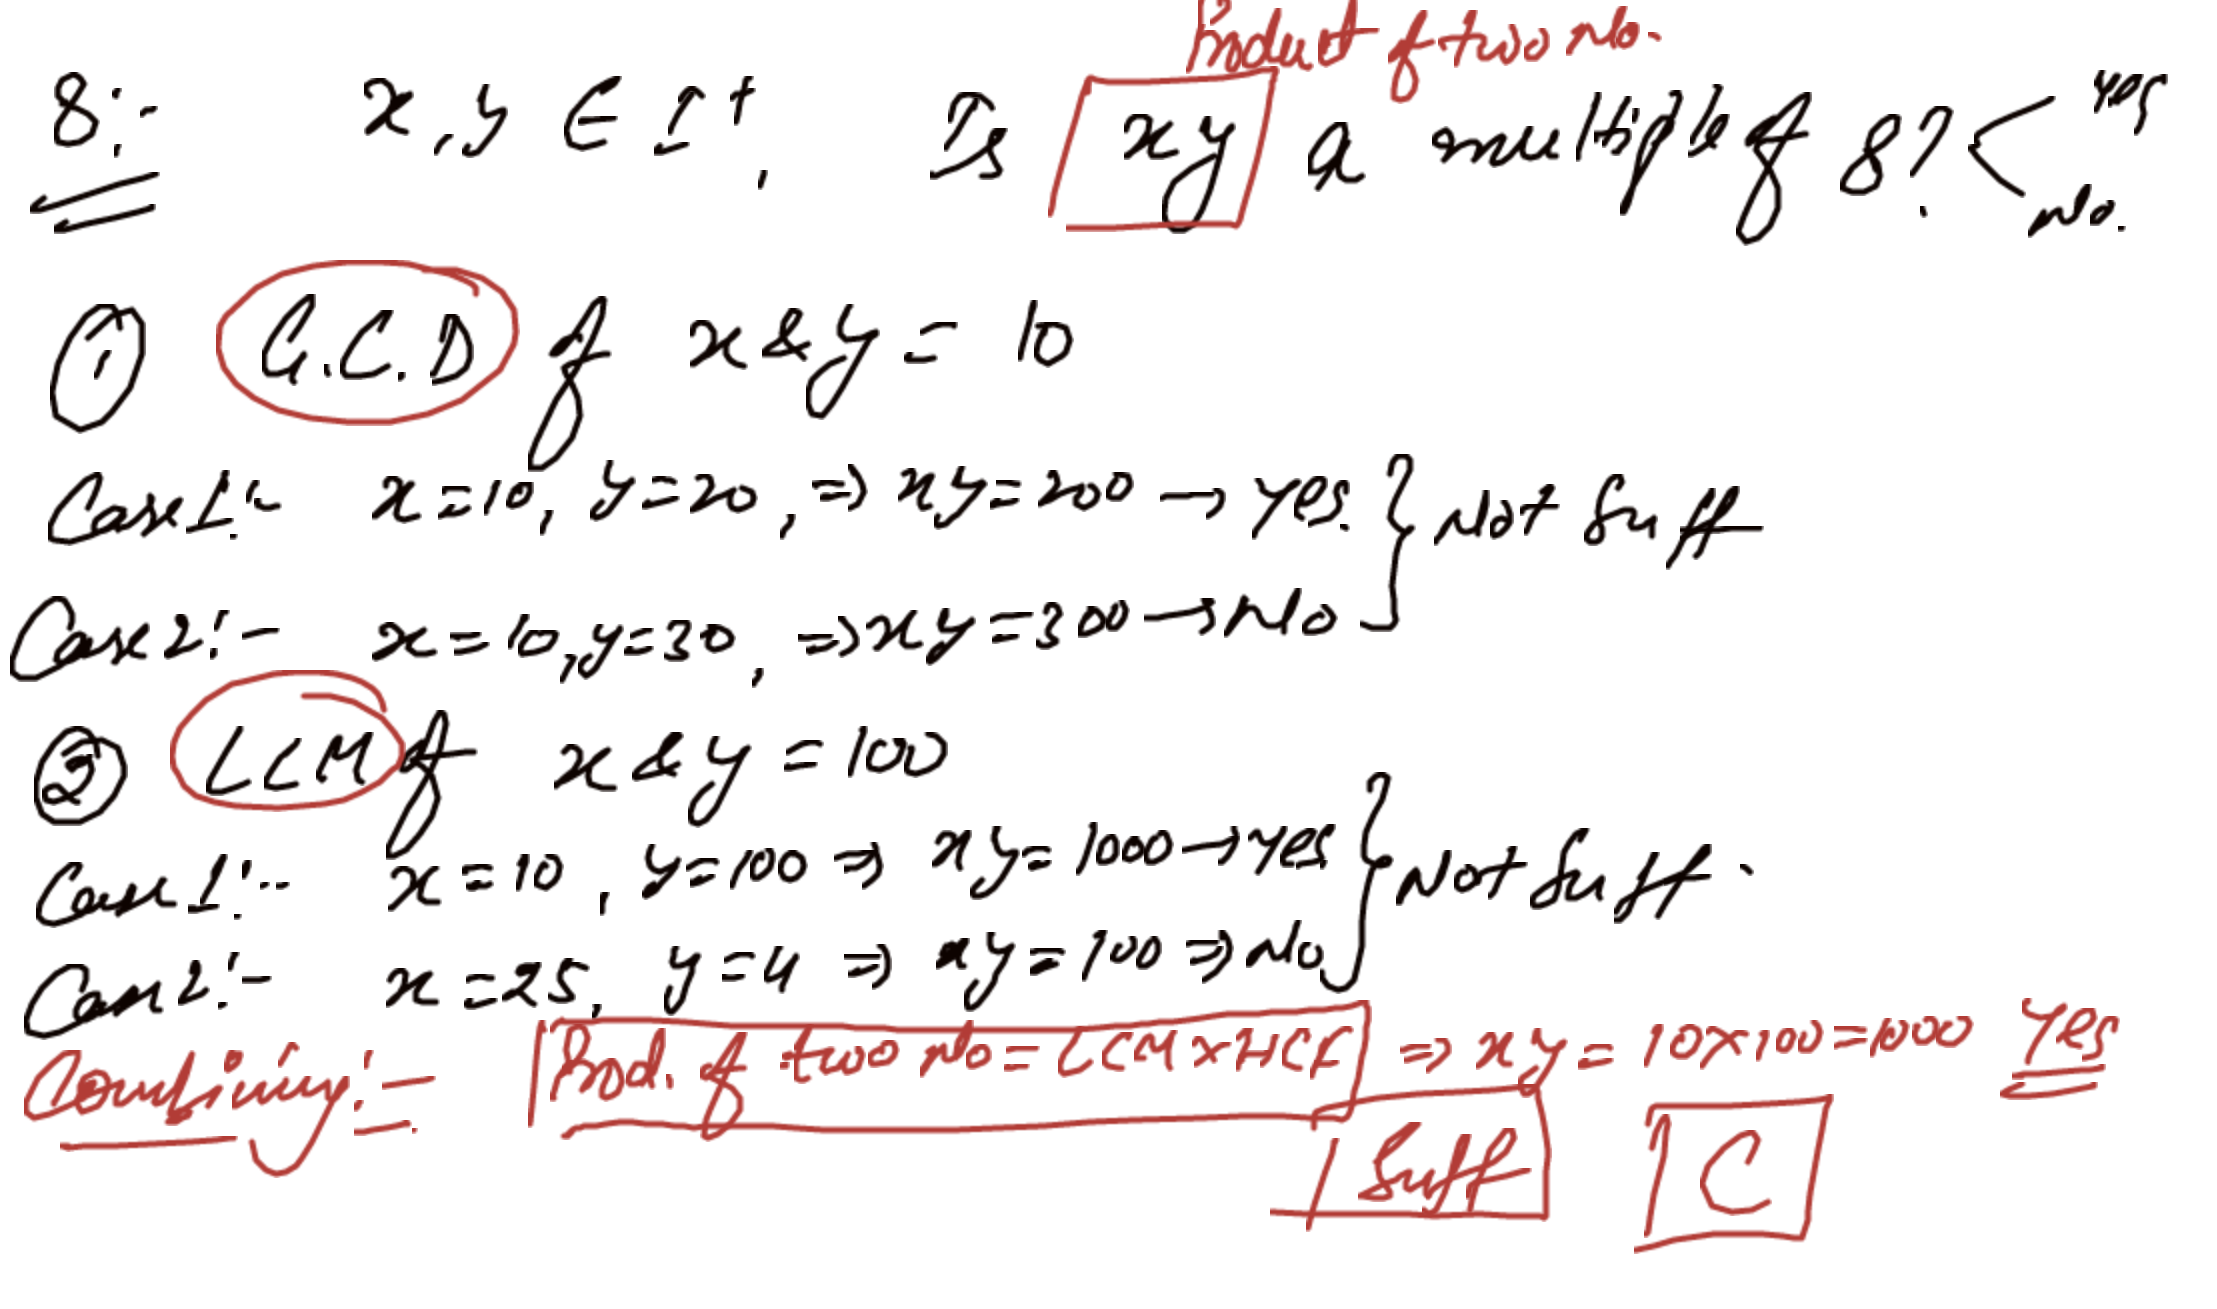 Product of two No.
8:- x, y ∈ I⁺, Is xy a multiple of 8? < Yes
No.
① G.C.D of x & y = 10
Case 1:- x = 10, y = 20, ⇒ xy = 200 → Yes. } Not Suff
Case 2:- x = 10, y = 30, ⇒ xy = 300 → No
② LCM of x & y = 100
Case 1:- x = 10, y = 100 ⇒ xy = 1000 → Yes } Not Suff.
Case 2:- x = 25, y = 4 ⇒ xy = 100 ⇒ No
Combining:- Prod. of two No = LCM × HCF ⇒ xy = 10 × 100 = 1000 Yes
Suff C